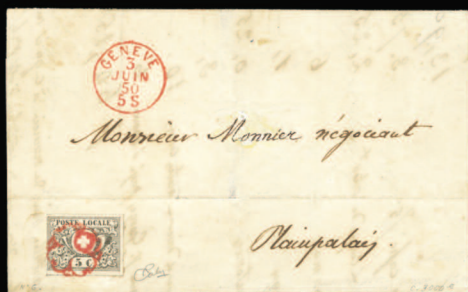 GENEVE
3
JUIN
50
5 S
Monsieur Monnier négociant
Plainpalais.
POSTE LOCALE
5 C